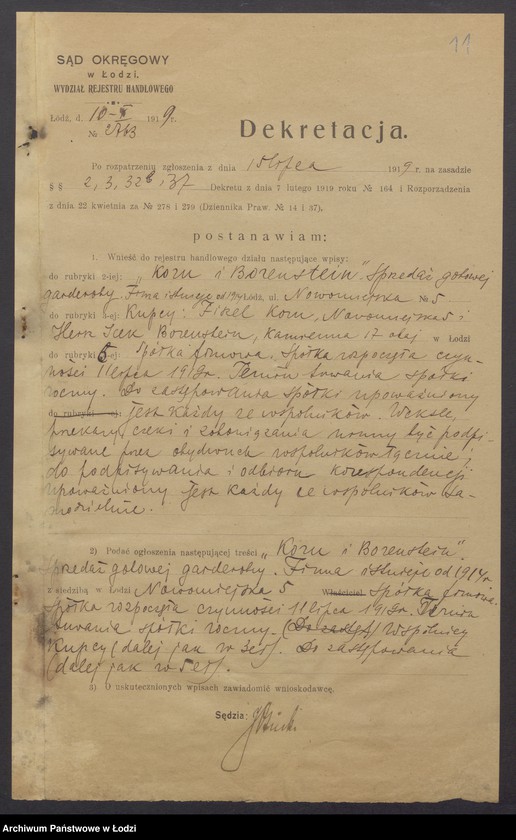 11
SĄD OKRĘGOWY
w Łodzi.
WYDZIAŁ REJESTRU HANDLOWEGO
Łódź, d. 10-X 1919 r.
№ 2763
Dekretacja.
Po rozpatrzeniu zgłoszenia z dnia 1919 r. na zasadzie
§ § 2, 3, 32, 37 Dekretu z dnia 7 lutego 1919 roku № 164 i Rozporządzenia
z dnia 22 kwietnia za № 278 i 279 (Dziennika Praw. № 14 i 37),
postanawiam:
1. Wnieść do rejestru handlowego działu następujące wpisy:
do rubryki 2-iej: „Korn i Borenstein". Sprzedaż gotowej
garderoby. Firma istnieje od 1914 Łódź, ul. Nowomiejska № 5
do rubryki iej: Kupcy: Korn, Nowomiejska 5 i
Icek Borenstein, Kamienna 17 obaj w Łodzi
do rubryki 5 ej: Spółka firmowa. Spółka rozpoczęła czyn-
ności 11 lipca 1919 r. Termin trwania spółki
roczny. Do zastępowania spółki upoważniony
do rubryki ej: jest każdy ze wspólników. Weksle,
przekazy, czeki i zobowiązania winny być podpi-
sywane przez obydwuch wspólników łącznie;
do podpisywania i odbioru korespondencji
upoważniony jest każdy ze wspólników sa-
modzielnie.
2) Podać ogłoszenia następującej treści „Korn i Borenstein".
Sprzedaż gotowej garderoby. Firma istnieje od 1914 r.
z siedzibą w Łodzi Nowomiejska 5 Właściciel Spółka firmowa.
Spółka rozpoczęła czynności 11 lipca 1919 r. Termin
trwania spółki roczny. (Do zastęp) Wspólnicy
Kupcy (dalej jak w 3 ej). Do zastępowania
(dalej jak w 5 ej).
3) O uskutecznionych wpisach zawiadomić wnioskodawcę.
Sędzia:
Archiwum Państwowe w Łodzi